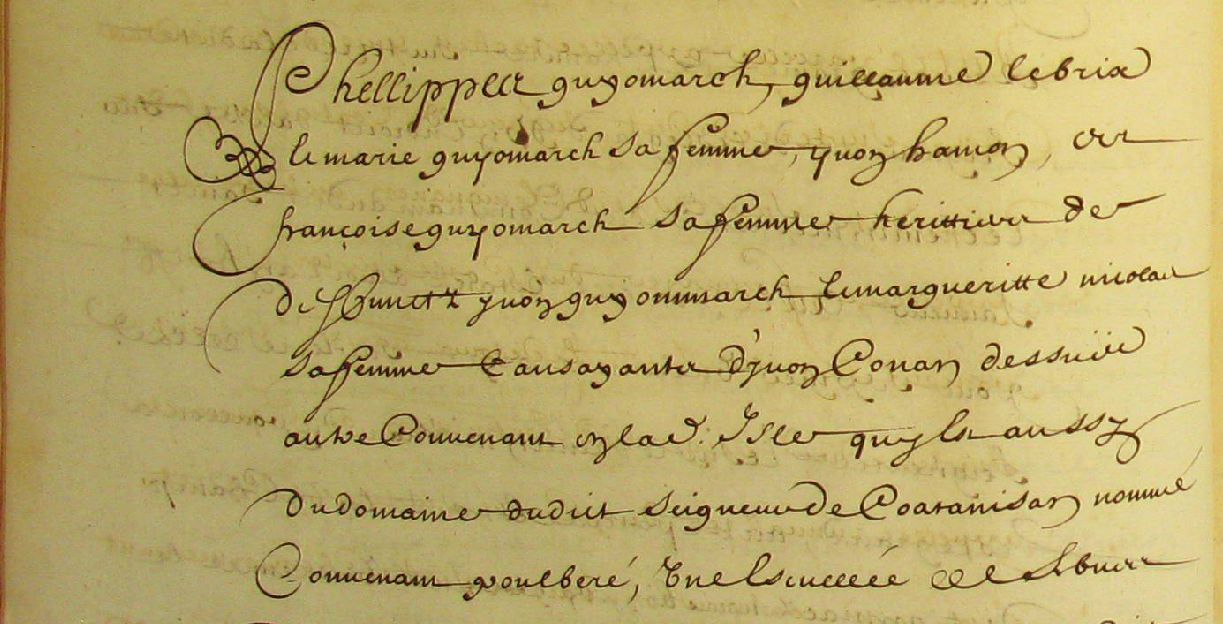 Phellippes guyomarch, guillaume lebrix
& marie guyomarch sa femme, yvon hamon, et
françoise guyomarch sa femme herittiers de
deffunctz yvon guyommarch & margueritte nicolas
sa femme causayants d'yvon Conan dessuivé
autre Convenant en lad. Isle quylz aussy
du domaine dudict seigneur de Coatanisan nommé
Convenant poulberé,